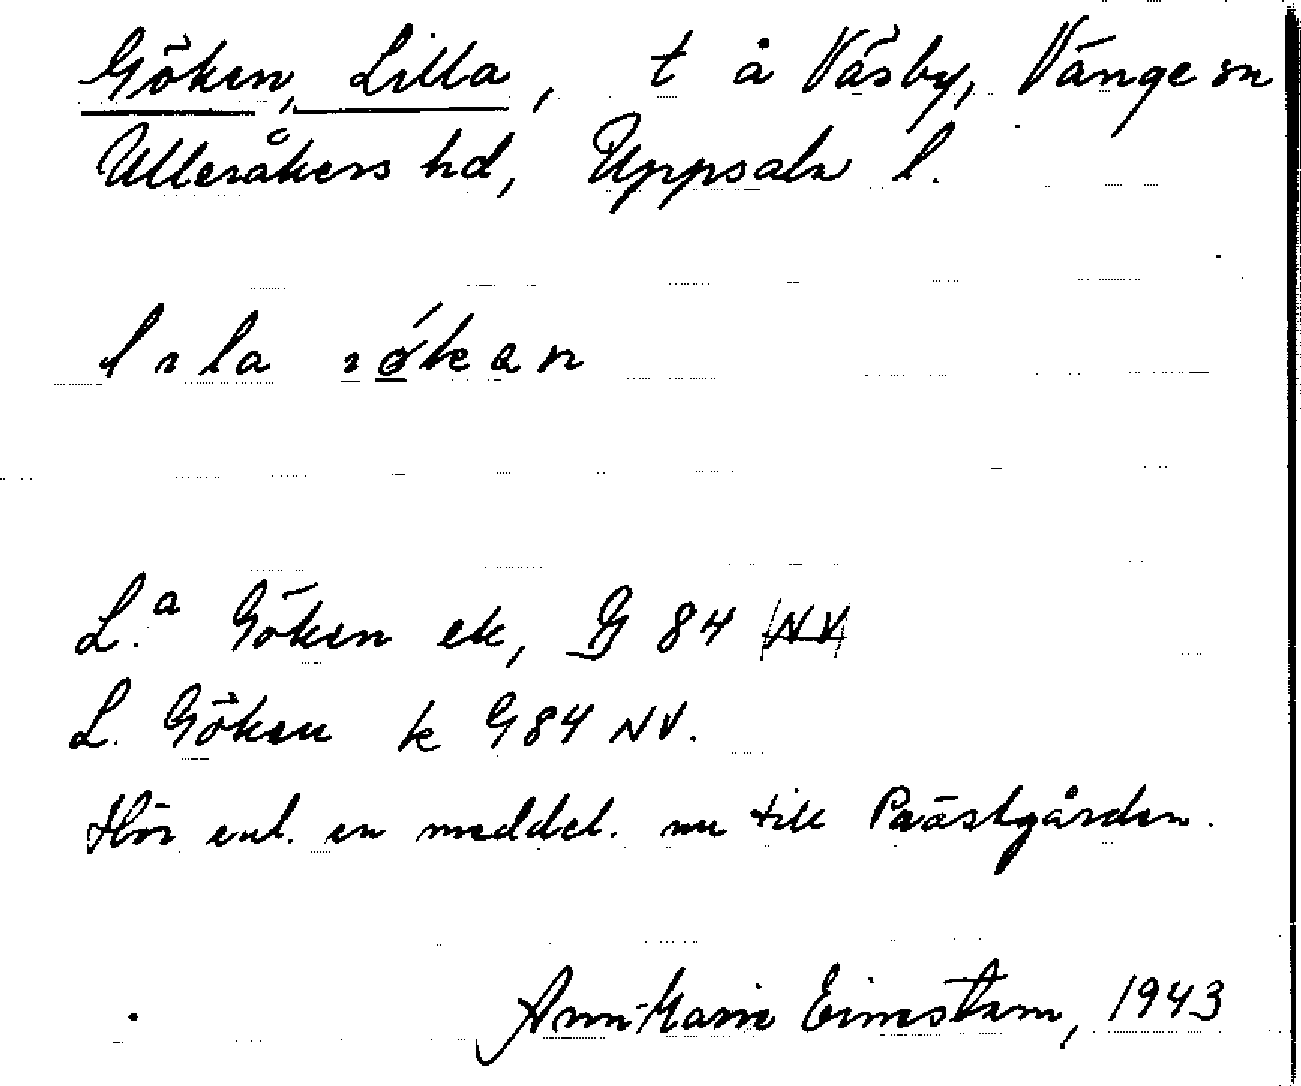 Göken, Lilla, t å Väsby, Vänge sn
Ulleråkers hd, Uppsala l.
L.a Göken ek, G 84 NV
L. Göken k G84 NV.
Hör enl. en meddel. nu till Prästgården.
Ann-Marie Eimstam, 1943